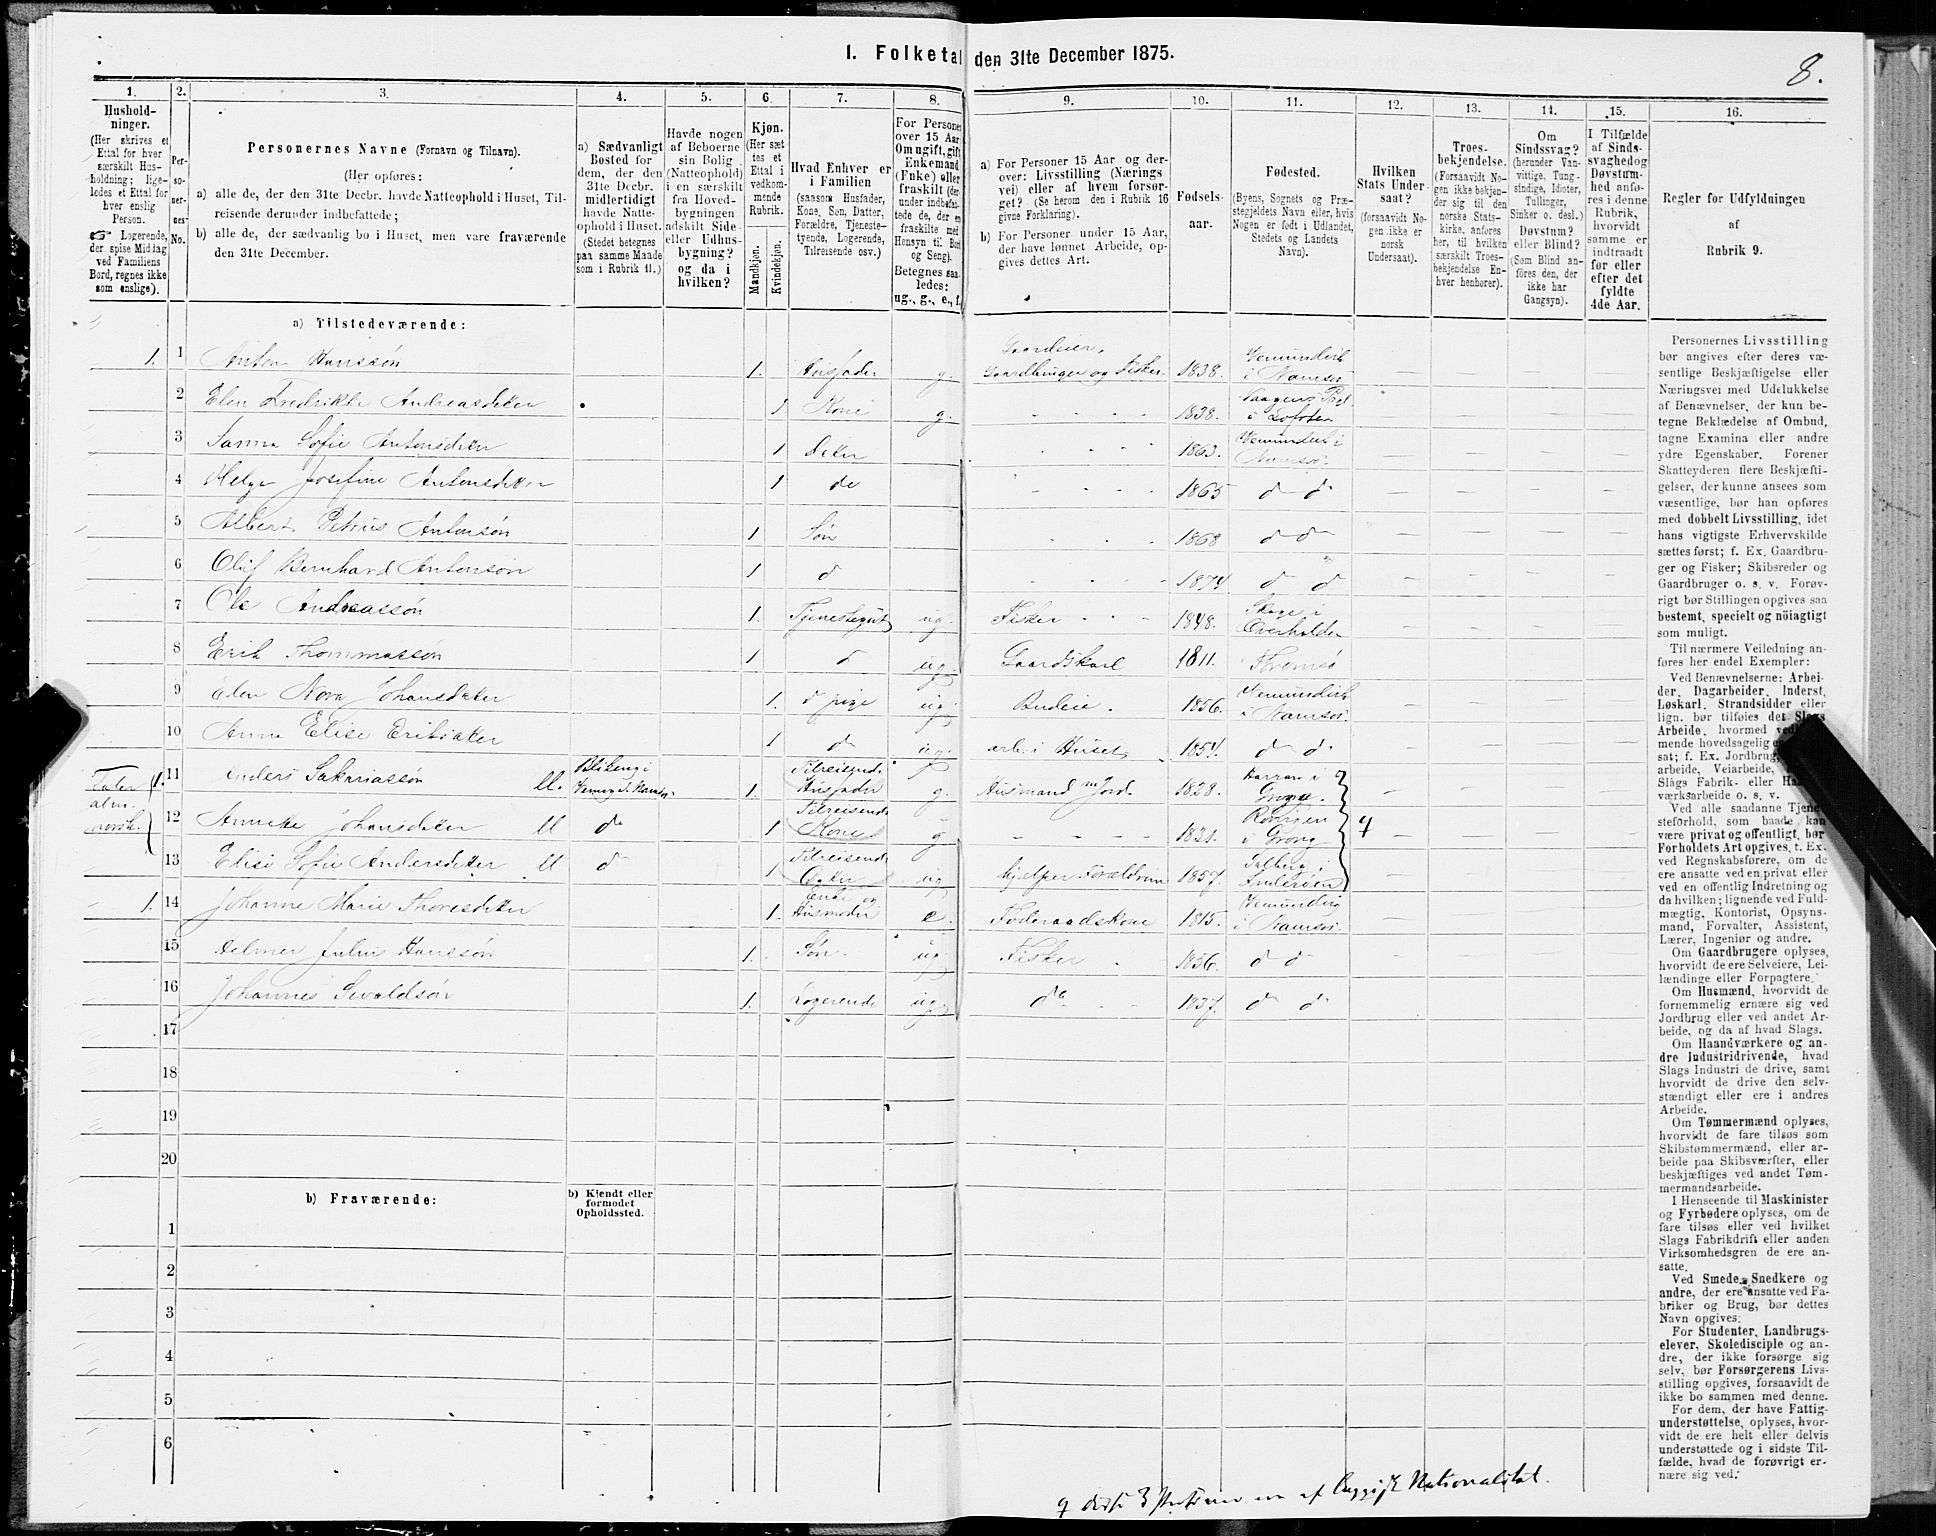 I. Folketal den 31te December 1875.
8.
1.
Hushold-
ninger.
(Her skrives et
Ettal for hver
særskilt Hus-
holdning; lige-
ledes et Ettal for
hver enslig
Person.
Logerende,
der spise Middag
ved Familiens
Bord, regnes ikke
som enslige).
2.
Per-
so-
ner-
nes
No.
3.
Personernes Navne (Fornavn og Tilnavn).
(Her opføres:
a) alle de, der den 31te Decbr. havde Natteophold i Huset, Til-
reisende derunder indbefattede;
b) alle de, der sædvanlig bo i Huset, men vare fraværende
den 31te December.
4.
a) Sædvanligt
Bosted for
dem, der den
31te Decbr.
midlertidigt
havde Natte-
ophold i Huset.
(Stedet betegnes
paa samme Maade
som i Rubrik 11.)
5.
Havde nogen
af Beboerne
sin Bolig
(Natteophold)
i en særskilt
fra Hoved-
bygningen
adskilt Side-
eller Udhus-
bygning?
og da i
hvilken?
6.
Kjøn.
(Her sæt-
tes et
Ettal i
vedkom-
mende
Rubrik.
Mandkjøn.
Kvindekjøn.
7.
Hvad Enhver er
i Familien
(saasom Husfader,
Kone, Søn, Datter,
Forældre, Tjeneste-
tyende, Logerende,
Tilreisende osv.)
8.
For Personer
over 15 Aar:
Om ugift, gift,
Enkemand
(Enke) eller
fraskilt (der-
under indbefat-
tede de, der ere
fraskilte med
Hensyn til Bord
og Seng).
Betegnes saa-
ledes:
ug., g., e., f.
9.
a) For Personer 15 Aar og der-
over: Livsstilling (Nærings-
vei) eller af hvem forsør-
get? (Se herom den i Rubrik 16
givne Forklaring).
b) For Personer under 15 Aar,
der have lønnet Arbeide, op-
gives dettes Art.
10.
Fødsels-
aar.
11.
Fødested.
(Byens, Sognets og Præ-
stegjeldets Navn eller, hvis
Nogen er født i Udlandet,
Stedets og Landets
Navn).
12.
Hvilken
Stats Under-
saat?
(forsaavidt No-
gen ikke er
norsk
Undersaat).
13.
Troes-
bekjendelse.
(Forsaavidt No-
gen ikke bekjen-
der sig til den
norske Stats-
kirke, anføres
her, til hvilken
særskilt Troes-
bekjendelse En-
hver henhører).
14.
Om
Sindssvag?
(herunder Van-
vittige, Tung-
sindige, Idioter,
Tullinger,
Sinker o. desl.)
Døvstum?
eller Blind?
(Som Blind an-
føres den, der
ikke har
Gangsyn).
15.
I Tilfælde
af Sinds-
svaghed og
Døvstum-
hed anfø-
res i denne
Rubrik,
hvorvidt
samme er
indtraadt
før eller
efter det
fyldte
4de Aar.
16.
Regler for Udfyldningen
af
Rubrik 9.
a) Tilstedeværende:
1. 1 Anton Hanssøn 1. Husfader g. Gaardeier, Gaardbruger og Fisker 1838. Vemundvik i Namsos
2 Elen Fredrikke Andreasdatter 1 Kone g. 1838. Vaagens Pgl i Lofoten
3 Sanna Sofie Antonsdatter 1 Datter 1863. Vemundvik i Namsos.
4 Helga Josefine Antonsdatter 1 do 1865 do do
5 Albert Petrus Antonsøn 1 Søn 1868 do do
6 Oluf Bernhard Antonsøn 1 do 1874 do do
7 Ole Andreassøn 1. Tjenestegut ug. Fisker 1848. Skage i Overhalden
8 Erik Thommassøn 1. do ug. Gaardskarl 1811. Tromsø
9 Elen Nora Johansdatter 1. do pige ug. Budeie. 1856. Vemundvik i Namsos.
10 Anna Elise Eriksdatter 1 do ug. arb. i Huset 1854. do do
Taler alm. norsk 1. 11 Anders Sakariassøn Vemv. i Namsos 1. Tilreisende Husfader g Husmand m Jord. 1828. Harran i Grong.
12 Anneke Johansdatter do 1 Tilreisende Kone g 1831. i Grong
13 Elise Sofie Andersdatter do 1 Tilreisende Datter ug hjælper Forældrene 1857. i Inderøen
1. 14 Johanne Marie Thoresdatter 1. Enke og Husmoder e. Føderaadskone 1815. Vemundvig i Namsos.
15 Helmer Julius Hanssøn 1. Søn. ug. Fisker 1856. do do
16 Johannes Sivaldsøn 1. Logerende ug. do 1837. do do
17
18
19
20
b) Fraværende:
b) Kjendt eller
formodet
Opholdssted.
1
2
3
4
5
6
Personernes Livsstilling
bør angives efter deres væ-
sentlige Beskjæftigelse eller
Næringsvei med Udelukkelse
af Benævnelser, der kun be-
tegne Beklædelse af Ombud,
tagne Examina eller andre
ydre Egenskaber. Forener
Skatteyderen flere Beskjæfti-
gelser, der kunne ansees som
væsentlige, bør han opføres
med dobbelt Livsstilling, idet
hans vigtigste Erhvervskilde
sættes først; f. Ex. Gaardbru-
ger og Fisker; Skibsreder og
Gaardbruger o. s. v. Forøv-
rigt bør Stillingen opgives saa
bestemt, specielt og nøiagtigt
som muligt.
Til nærmere Veiledning an-
føres her endel Exempler:
Ved Benævnelserne: Arbei-
der, Dagarbeider, Inderst,
Løskarl, Strandsidder eller
lign. bør tilføies det Slags
Arbeide, hvormed
mende hovedsagelig
sat; f. Ex. Jordbrug,
arbeide, Veiarbeide,
Slags Fabrik- eller
værksarbeide o. s. v.
Ved alle saadanne Tjene-
steforhold, som baade kan
være privat og offentligt, bør
Forholdets Art opgives, t. Ex.
ved Regnskabsførere, om de
ere ansatte ved en privat eller
ved en offentlig Indretning og
da hvilken; lignende ved Fuld-
mægtig, Kontorist, Opsyns-
mand, Forvalter, Assistent,
Lærer, Ingeniør og andre.
Om Gaardbrugere oplyses,
hvorvidt de ere Selveiere, Lei-
lændinge eller Forpagtere.
Om Husmænd, hvorvidt de
fornemmelig ernære sig ved
Jordbrug eller ved andet Ar-
beide, og da af hvad Slags.
Om Haandværkere og an-
dre Industridrivende, hvad
Slags Industri de drive, samt
hvorvidt de drive den selv-
stændigt eller ere i andres
Arbeide.
Om Tømmermænd oplyses,
hvorvidt de fare tilsøs som
Skibstømmermænd, eller ar-
beide paa Skibsværfter, eller
beskjæftiges ved andet Tøm-
mermandsarbeide.
I Henseende til Maskinister
og Fyrbødere oplyses, om de
fare tilsøs eller ved hvilket
Slags Fabrikdrift eller anden
Virksomhedsgren de ere an-
satte.
Ved Smede, Snedkere og
andre, der ere ansatte ved Fa-
briker og Brug, bør dettes
Navn opgives.
For Studenter, Landbrugs-
elever, Skoledisciple og an-
dre, der ikke forsørge sig
selv, bør Forsørgerens Livs-
stilling opgives, forsaavidt de
ikke bo sammen med denne.
For dem, der have Fattig-
understøttelse, oplyses, hvor-
vidt de ere helt eller delvis
understøttede og i sidste Til-
fælde, hvad de forøvrigt er-
nære sig ved.
disse 3 Personer ere af Nationalitet.